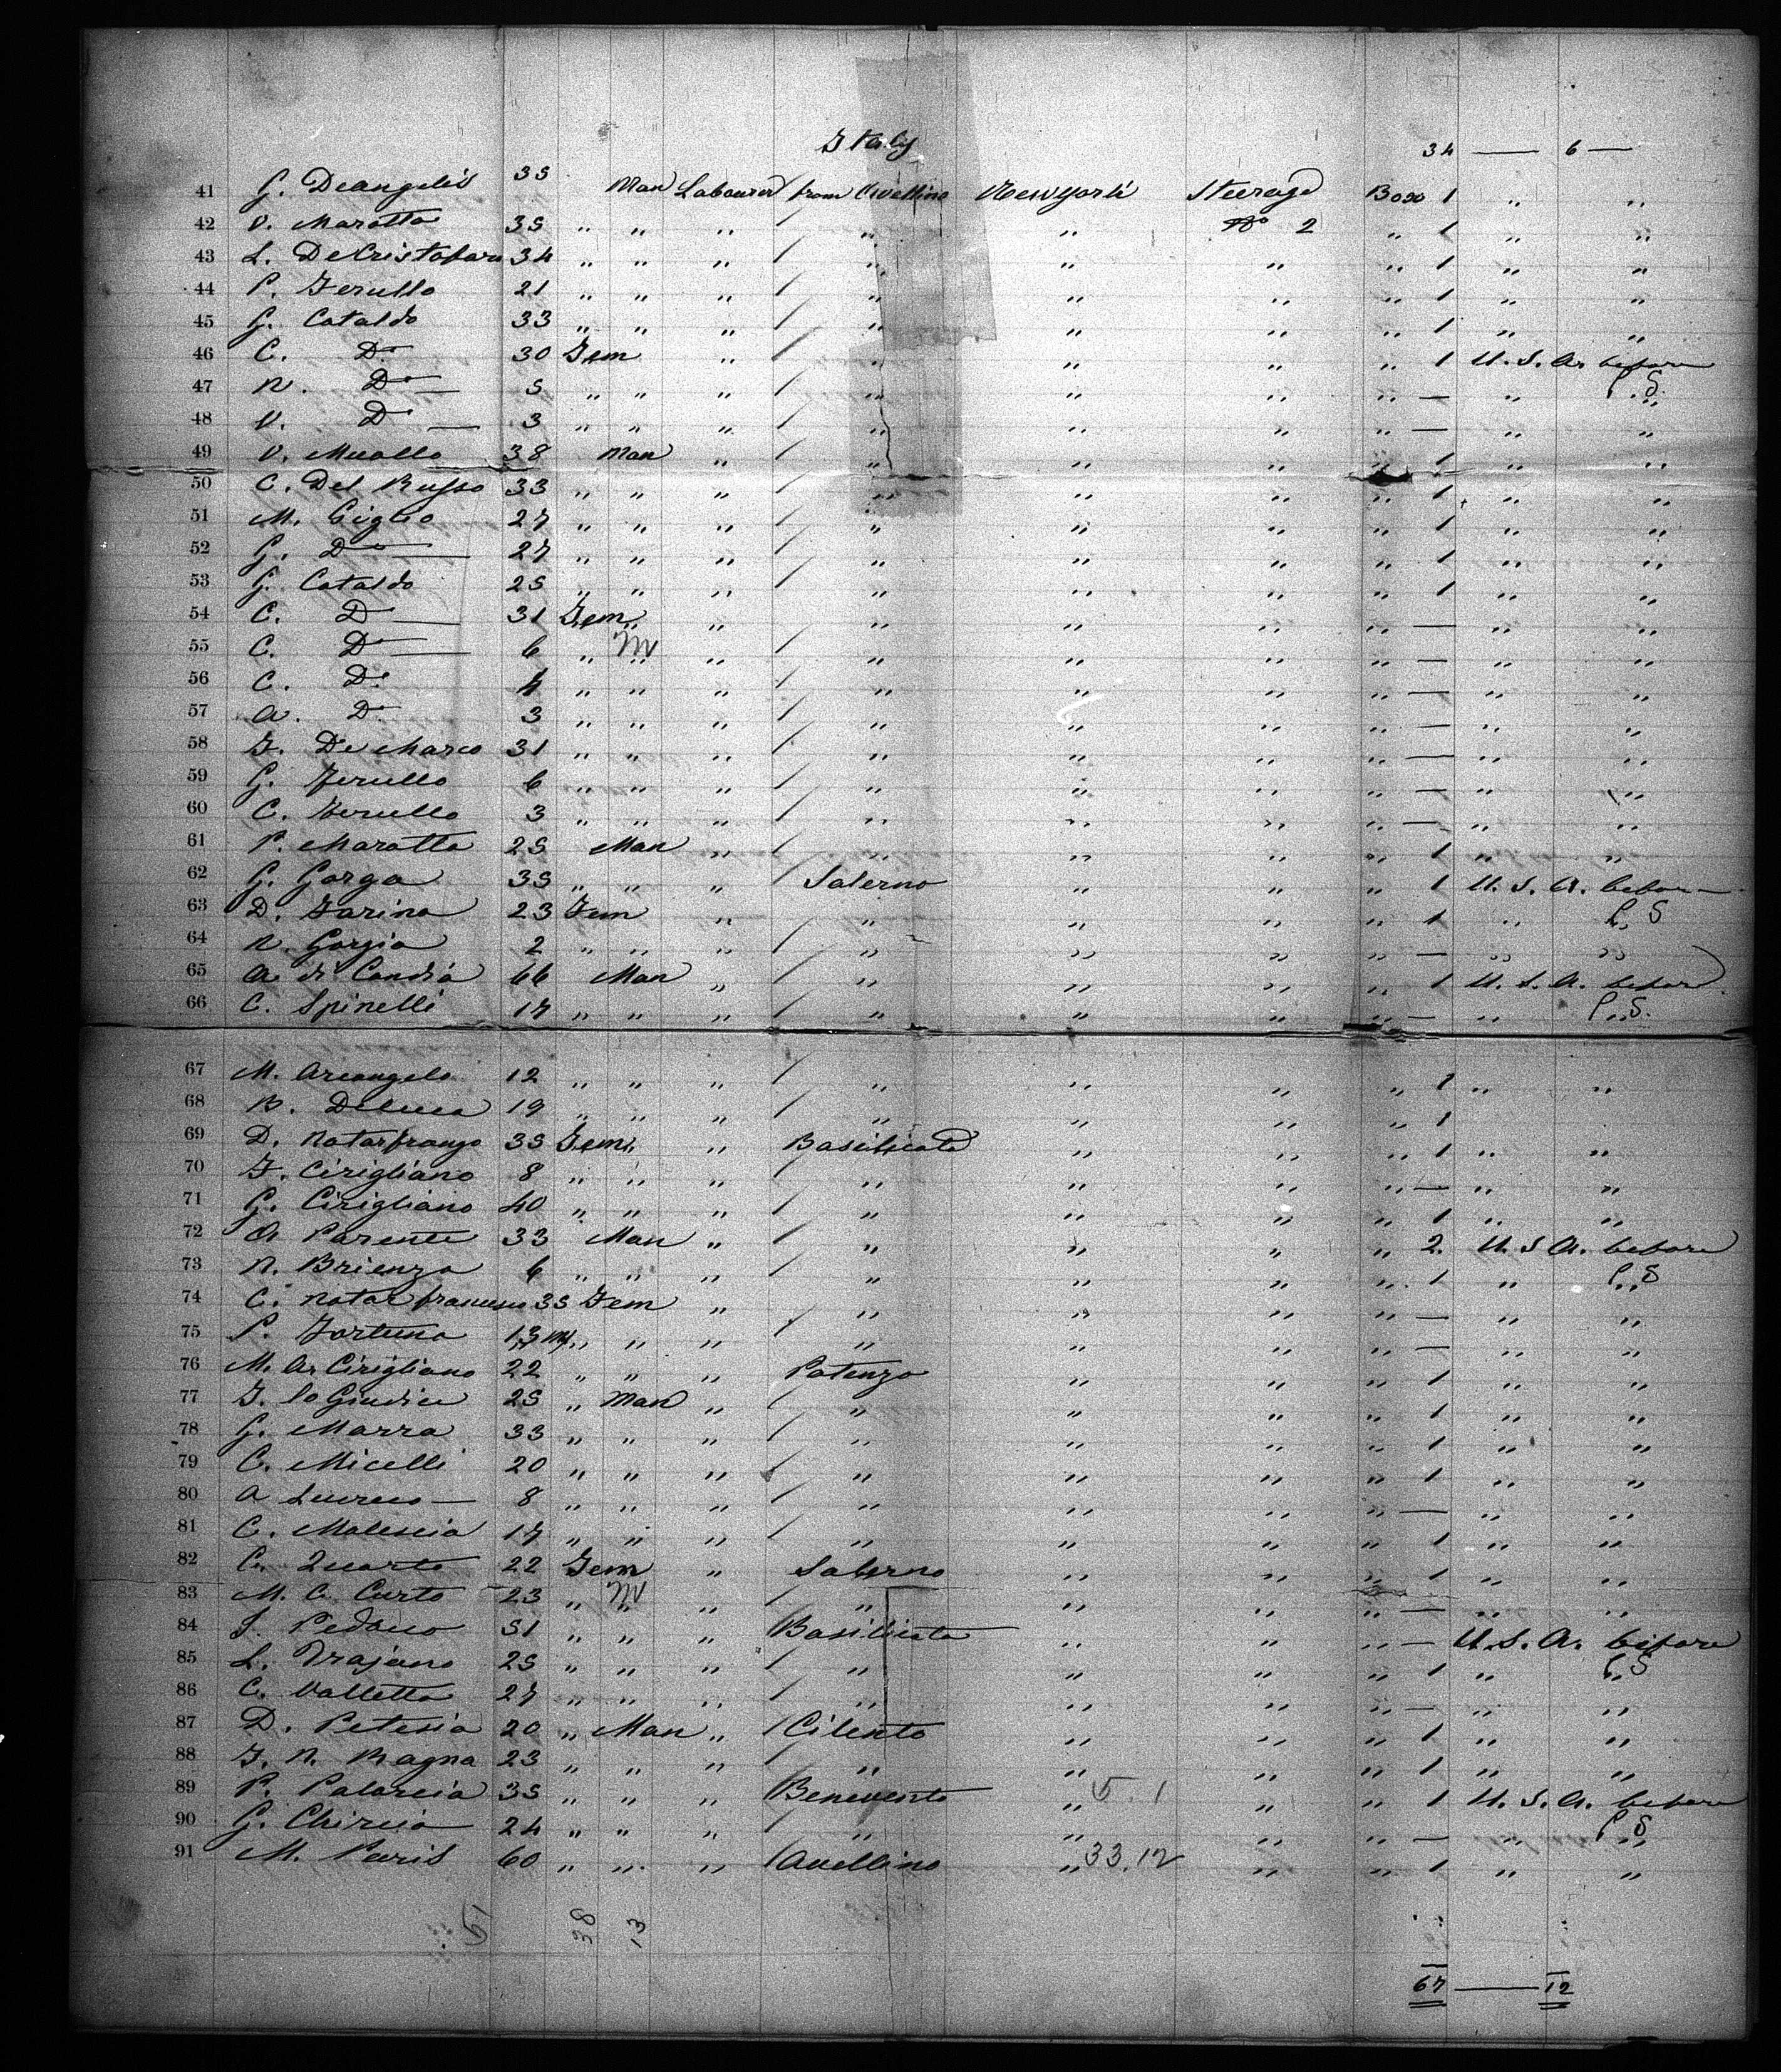 Italy
34 — 6 —
41 G. Deangelis 35 Man Labourer from Avellino New York Steerage Box 1 " "
42 V. Maratta 35 " " " / " " No 2 " 1 " "
43 L. DeCristofaro 34 " " " / " " " " 1 " "
44 P. Ferullo 21 " " " / " " " " 1 " "
45 G. Cataldo 33 " " " / " " " " 1 " "
46 C. Do 30 Fem " / " " " " 1 U.S.A. before
47 N. Do — 5 " " " / " " " " — " P.S.
48 V. Do — 3 " " " / " " " " — " "
49 V. 38 Man " / " " " " 1 " "
50 C. Del Russo 33 " " " / " " " " 1 " "
51 M. Giglio 27 " " " / " " " " 1 " "
52 G. Do — 27 " " " / " " " " 1 " "
53 G. Cataldo 25 " " " / " " " " 1 " "
54 C. Do — 31 Fem " " / " " " " — " "
55 C. Do — 6 " M " / " " " " — " "
56 C. Do 4 " " " / " " " " — " "
57 A. Do 3 " " " / " " " " — " "
58 F. De Marco 31 " " " / " " " " — " "
59 G. Ferullo 6 " " " / " " " " — " "
60 C. Ferullo 3 " " " / " " " " — " "
61 P. Maratta 25 Man " / " " " " 1 " "
62 G. Gorga 35 " " " / Salerno " " " 1 U.S.A. before
63 D. Farina 23 Fem " / " " " " 1 " P.S
64 N. Gorgia 2 " " " / " " " " — " "
65 A di Candia 66 Man " / " " " " 1 U.S.A. before
66 C. Spinelli 17 " " " / " " " " — " P.S.
67 M. Arcangelo 12 " " " / " " " " 1 " "
68 B. Deluca 19 " " " / " " " " 1
69 D. 35 Fem " " Basilicata " " " 1 " "
70 F. Cirigliano 8 " " " / " " " " — " "
71 G. Cirigliano 40 " " " / " " " " 1 " "
72 A Parente 33 Man " / " " " " 2. U.S.A. before
73 N. Brienza 6 " " " / " " " " 1 " P.S
74 C. 35 Fem " / " " " " — " "
75 P. Fortuna 13 " " " / " " " " — " "
76 M. A. Cirigliano 22 " " " Potenza " " " 1 " "
77 F. lo Giudice 25 " Man " / " " " " 1 " "
78 G. Marra 33 " " " / " " " " 1 " "
79 C. Micelli 20 " " " / " " " " 1 " "
80 A — 8 " " " / " " " " — " "
81 C. 17 " " " / " " " " 1 " "
82 C. Quarto 22 Fem " Salerno " " " 1 " "
83 M. C. Curto 23 " M " / " " " " — " "
84 " " " Basilicata " " " — U.S.A. before
85 L. Trajano 25 " " " / " " " " 1 " P.S
86 C. Valletta 27 " " " / " " " " — " "
87 D. 20 " Man " / Cilento " " " 1 " "
88 F. N. Magna 23 " " " / " " " " 1 " "
89 P. 35 " " " Benevento " 5.1 " " 1 U.S.A. before
90 G. 24 " " " / " " " " — " P.S
91 M. 60 " " " / Avellino " 33.12 " " 1 " "
51 38 13
67 — 12